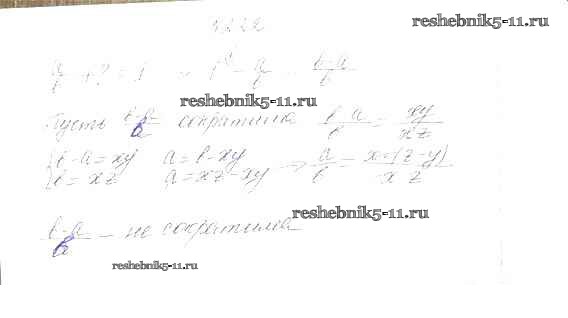 reshebnik5-11.ru
1222
a/b + ? = 1 1 - a/b b-a/b
reshebnik5-11.ru
Пусть b-a/b сократима b-a/b = xy/xz
{b-a=xy a=b-xy
{b=xz a=xz-xy => a/b = x(z-y)/xz
reshebnik5-11.ru
b-a/b - не сократима
reshebnik5-11.ru